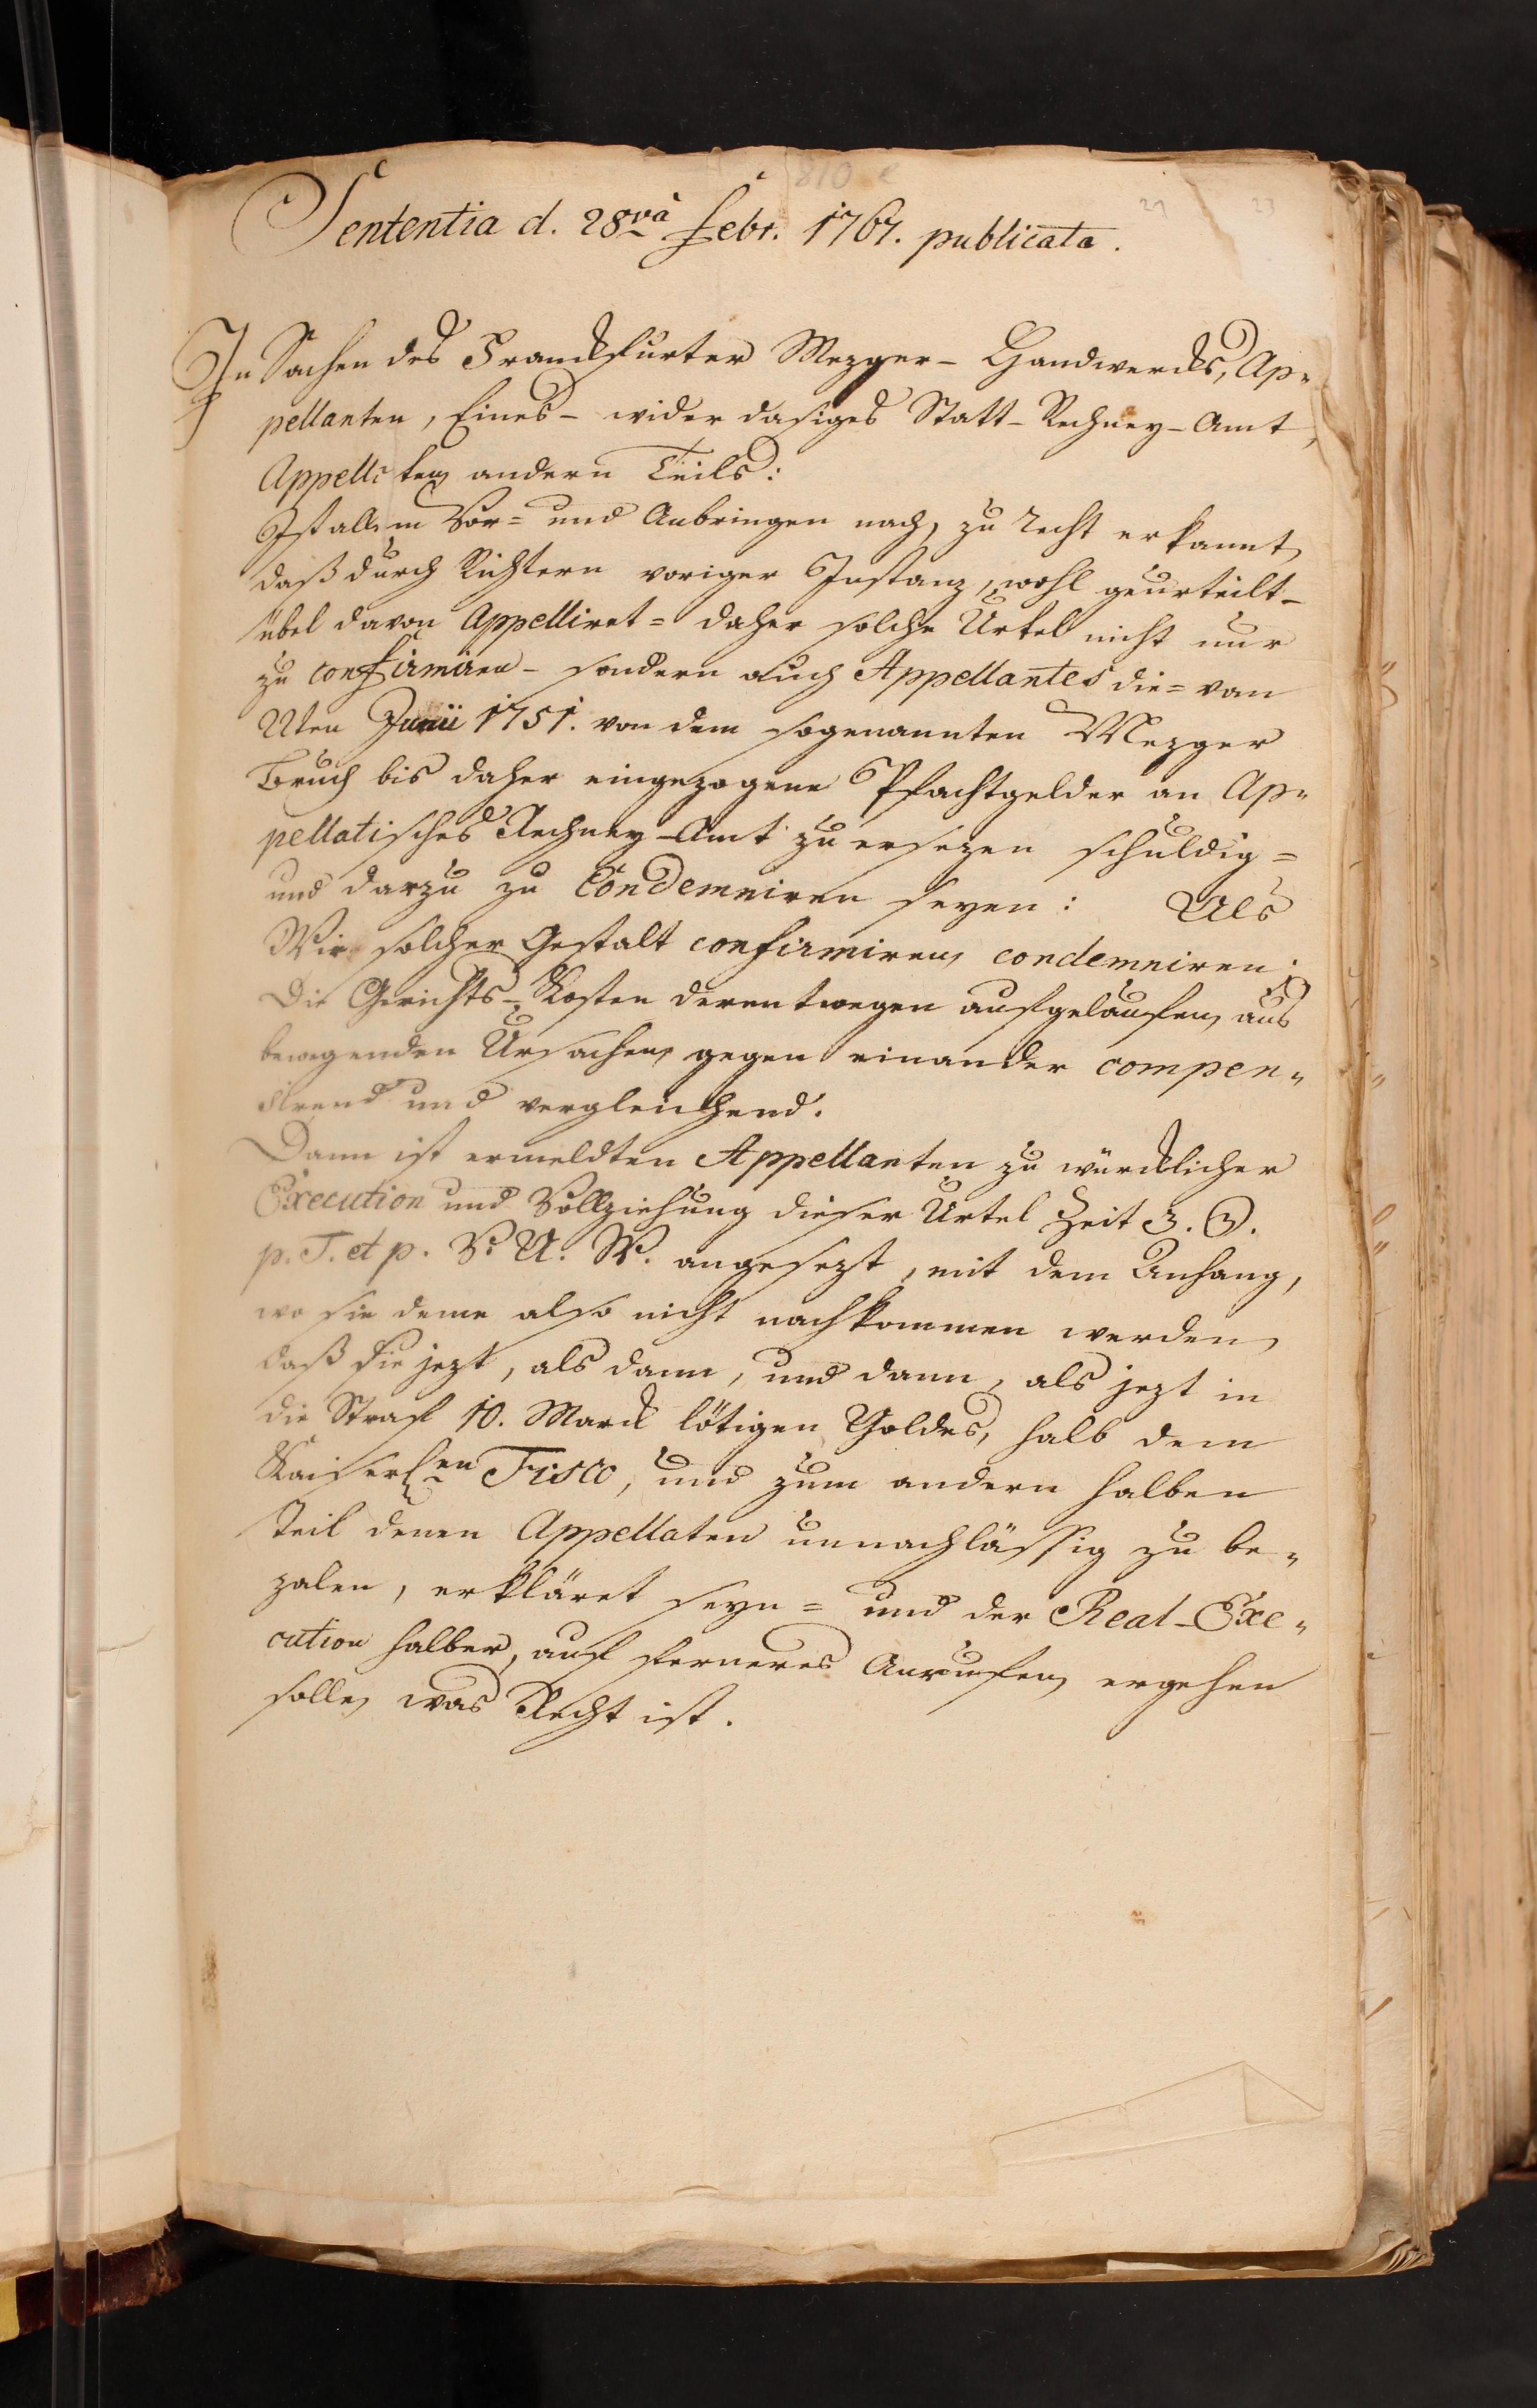 Sententia d. 28va Febr. 1767. publicata.
In Sachen des Franckfurter Mezger- Handwercks, Ap„
pellanten, Eines- wider dasiges Statt-Rechney-Amt,
Appellaten andern Teils:
Ist allem Vor= und Anbringen nach, zu Recht erkannt,
daß durch Richtern voriger Instanz, wohl geurteilt-
übel davon Appelliret= daher solche Urtel nicht nur
zu confirmiren- sondern auch Appellantes die= vom
Junii 1751. von dem sogenannten Mezger
Bruch bis daher eingezogene Pfachtgelder an Ap„
pellatisches Rechney-Amt zu ersezen schuldig=
und darzu zu Condemniren seyen: Als
Wir solcher Gestalt confirmiren, condemniren;
Die Gerichts-Kosten derentwegen aufgelaufen, aus
bewegenden Ursachen, gegen einander compen„
sirend und vergleichend.
Dann ist ermeldten Appellanten zu würcklicher
Execution und Vollziehung dieser Urtel Zeit 3. M.
p. T. et p. V. U. W. angesezt, mit dem Anhang,
wo sie deme also nicht nachkommen werden,
daß sie jezt, als dann, und dann, als jezt in
die Straf 10. Marck lötigen Goldes, halb dem
Kaiserlen Fisco, und zum andern halben
Teil denen Appellaten unnachlässig zu be„
zalen, erkläret seyn= und der Real-Exe„
cution halber, auf ferneres Anrufen, ergehen
solle, was Recht ist.